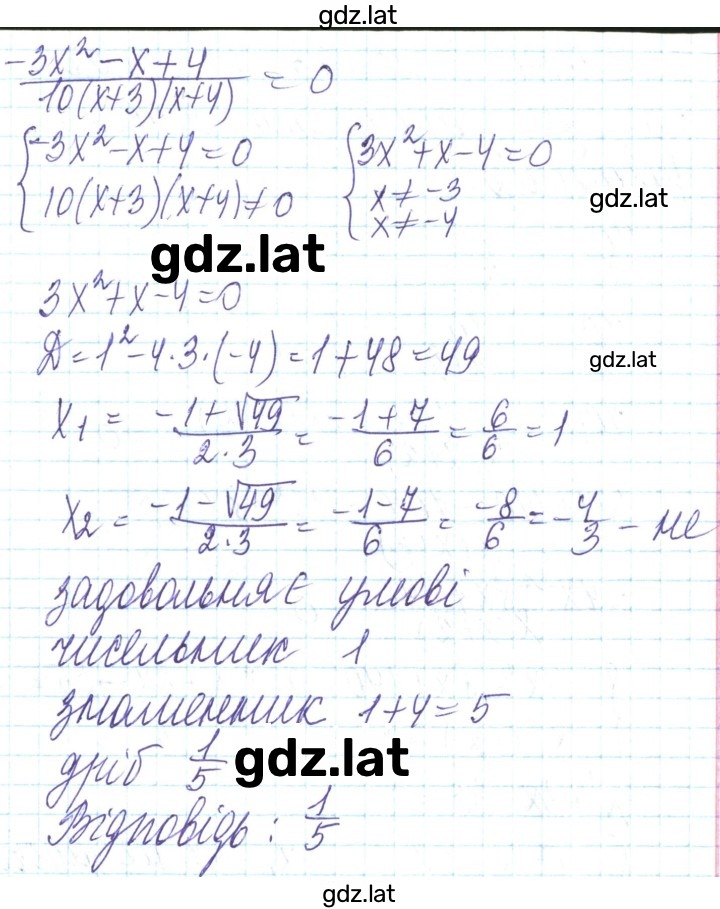 gdz.lat
(-3x² - x + 4)/(10(x+3)(x+4)) = 0
{ -3x² - x + 4 = 0 { 3x² + x - 4 = 0
10(x+3)(x+4) ≠ 0 x ≠ -3
x ≠ -4
gdz.lat
gdz.lat
3x² + x - 4 = 0
Д = 1² - 4·3·(-4) = 1 + 48 = 49
gdz.lat
x₁ = (-1+√49)/(2·3) = (-1+7)/6 = 6/6 = 1
x₂ = (-1-√49)/(2·3) = (-1-7)/6 = -8/6 = -4/3 - не
задовольняє умові
чисельник 1
знаменник 1+4=5
дріб 1/5
gdz.lat
Відповідь: 1/5
gdz.lat